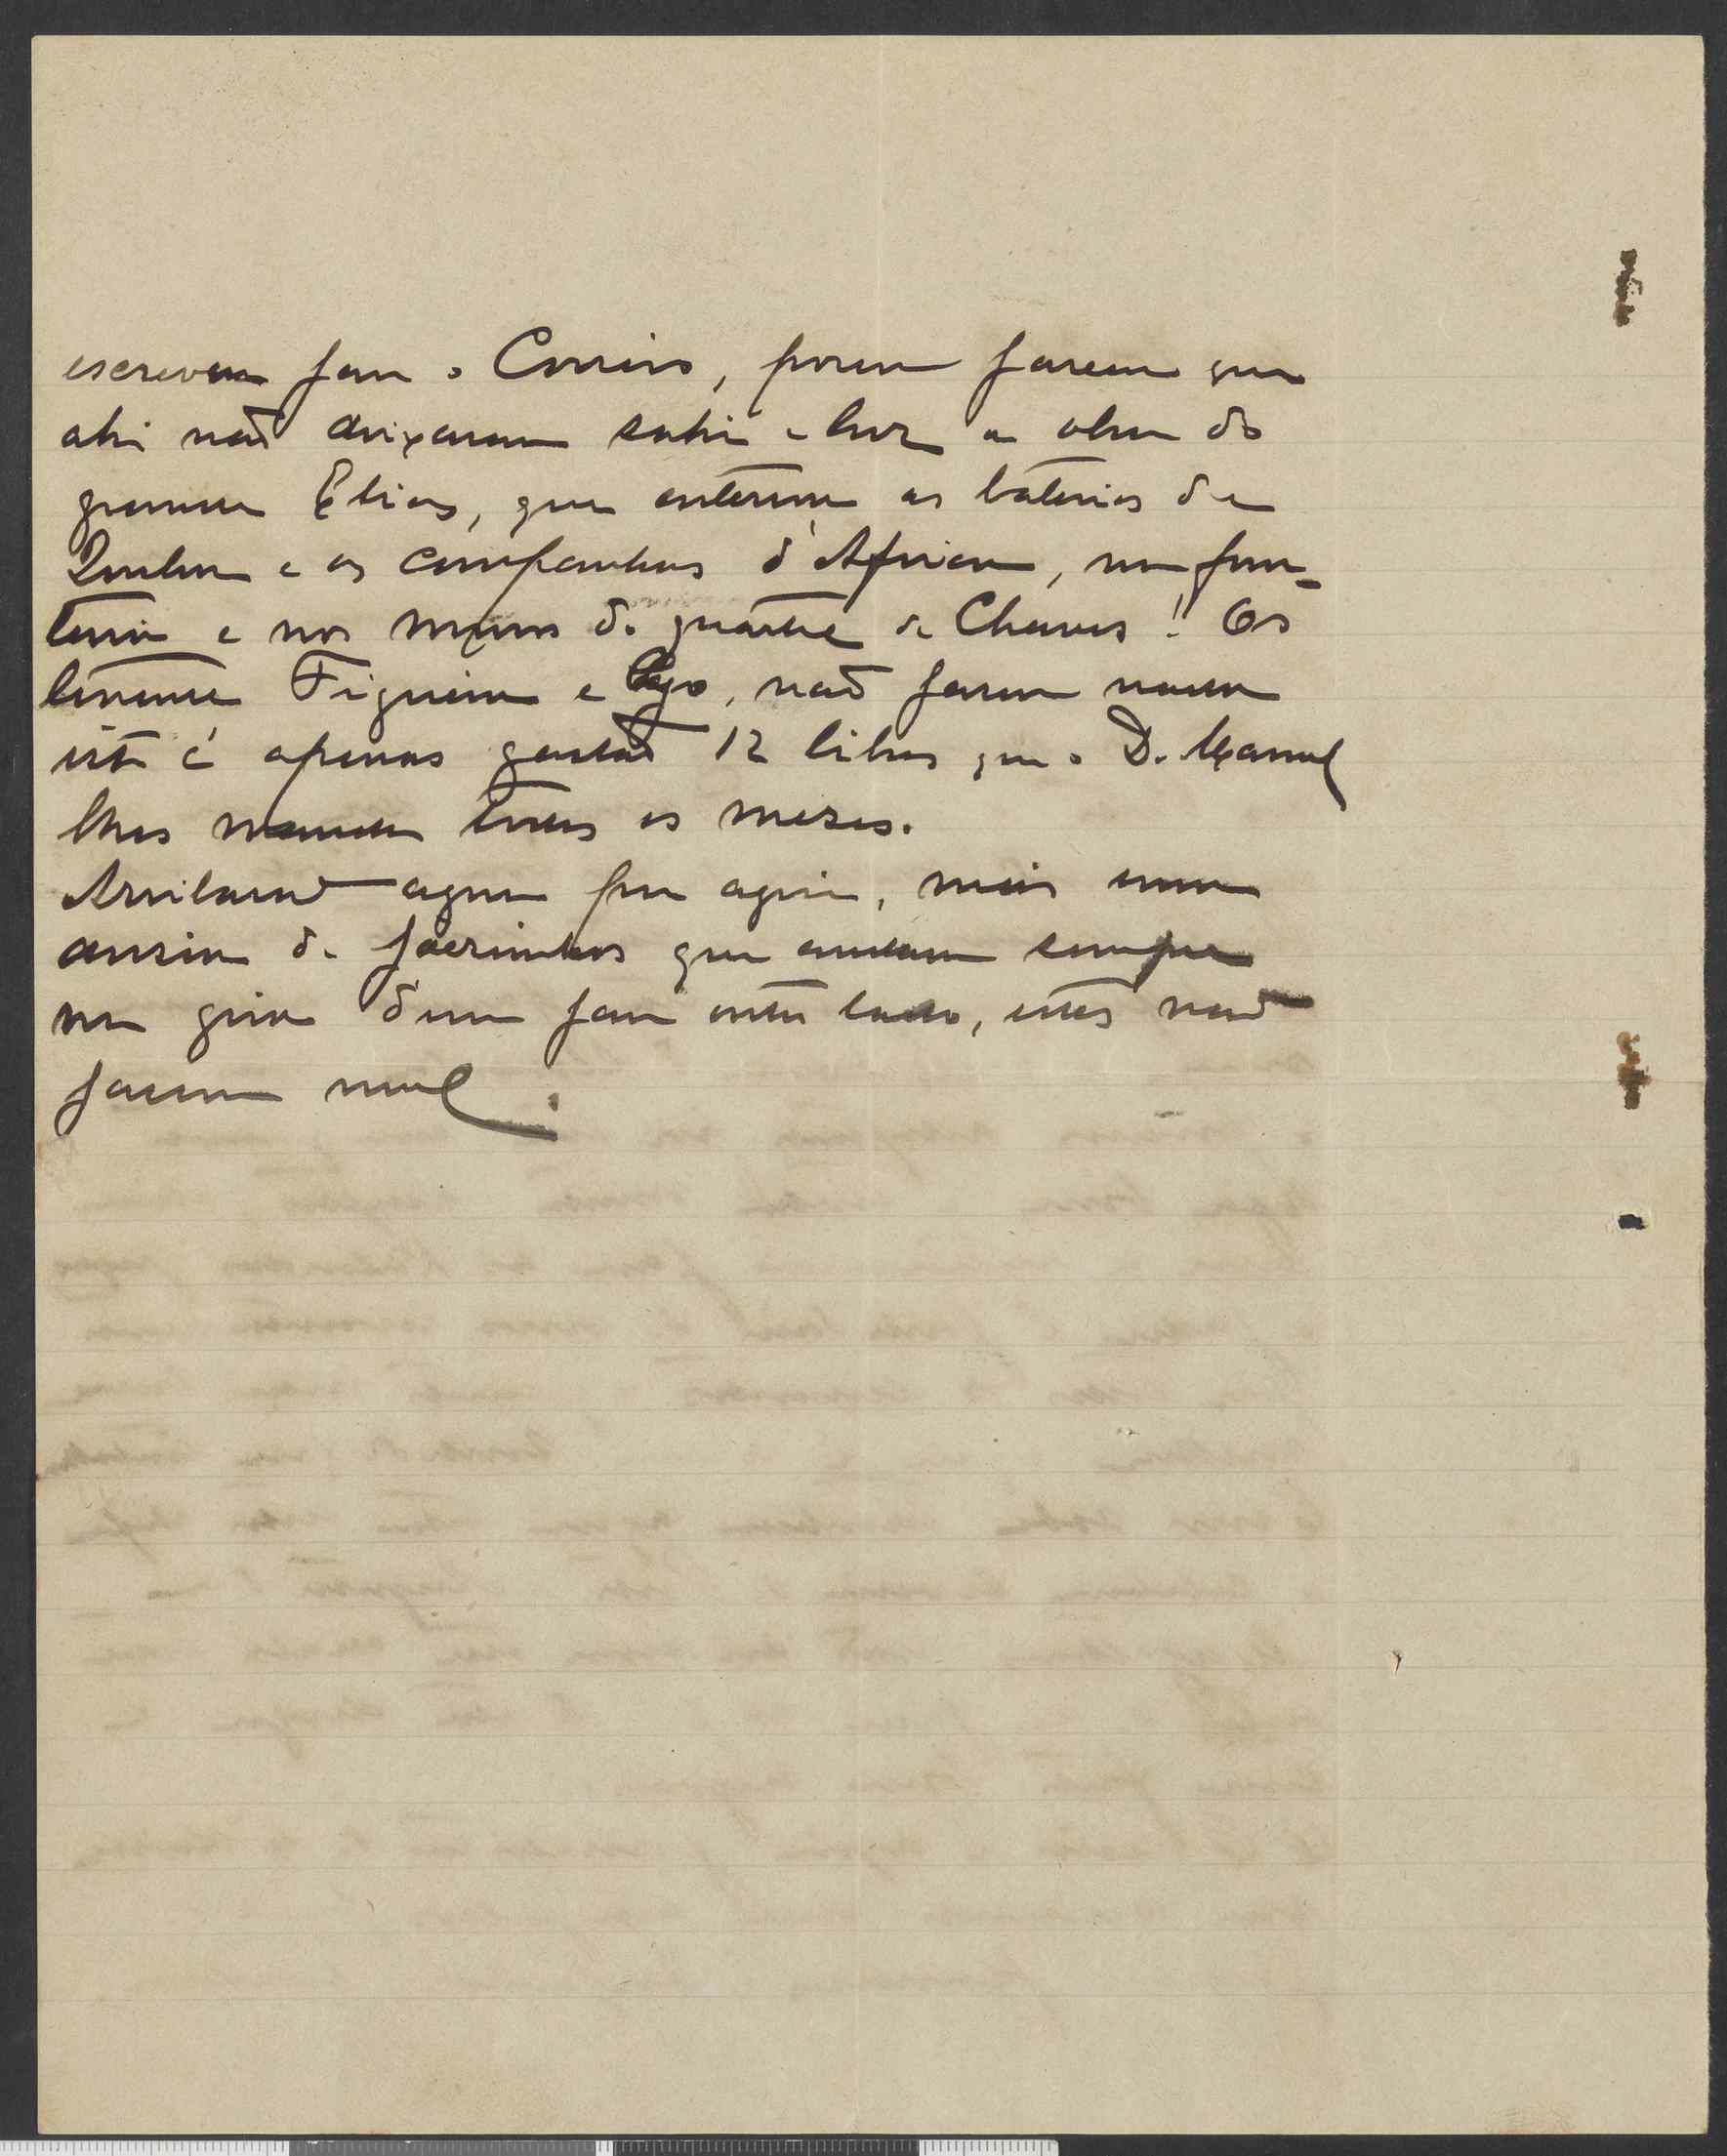 escreveu para o Correio, porem parece que
ahi não deixaram sahir á luz a obra do
grande Elias, que enterrou as baterias de
Quelim e as campanhas d'Africa, na fron-
teira e nos muros do quartel de Chaves! Os
tenentes Figueira e não fazem nada
isto é apenas gastão 12 libras que o D. Manuel
lhes manda todos os mezes.
agua por aqui, mais uma
duzia de que andam sempre
na gira d'um para outro lado, estes não
fazem mal.